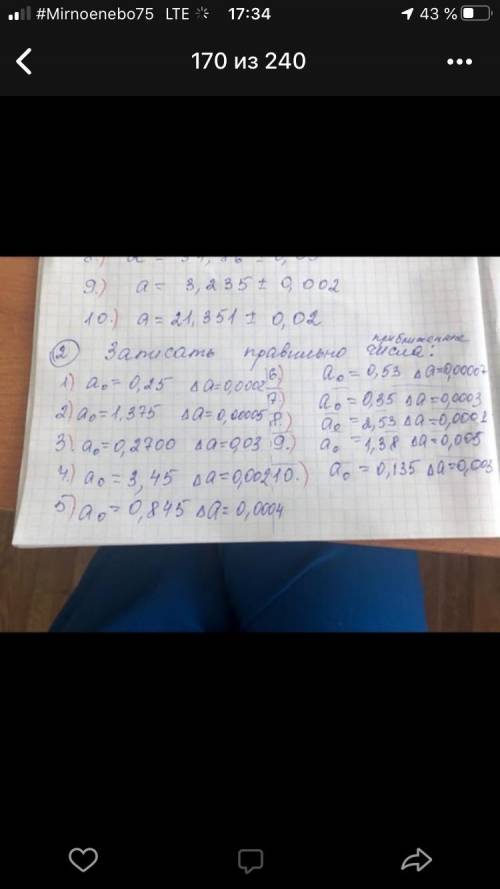 #Mirnoenebo75 LTE 17:34 43 %
170 из 240
9.) a = 3,235 ± 0,002
10.) a = 21,351 ± 0,02
2 Записать правильно приближенные числа:
1) a₀ = 0,25 Δa = 0,0002
2) a₀ = 1.375 Δa = 0,00005
3) a₀ = 0,2700 Δa = 0,03
4.) a₀ = 3,45 Δa = 0,002
5) a₀ = 0,845 Δa = 0,0004
6) a₀ = 0,53 Δa = 0,00007
7) a₀ = 0,35 Δa = 0,0003
8.) a₀ = 2,53 Δa = 0,0002
9.) a₀ = 1,38 Δa = 0,005
10.) a₀ = 0,135 Δa = 0,003